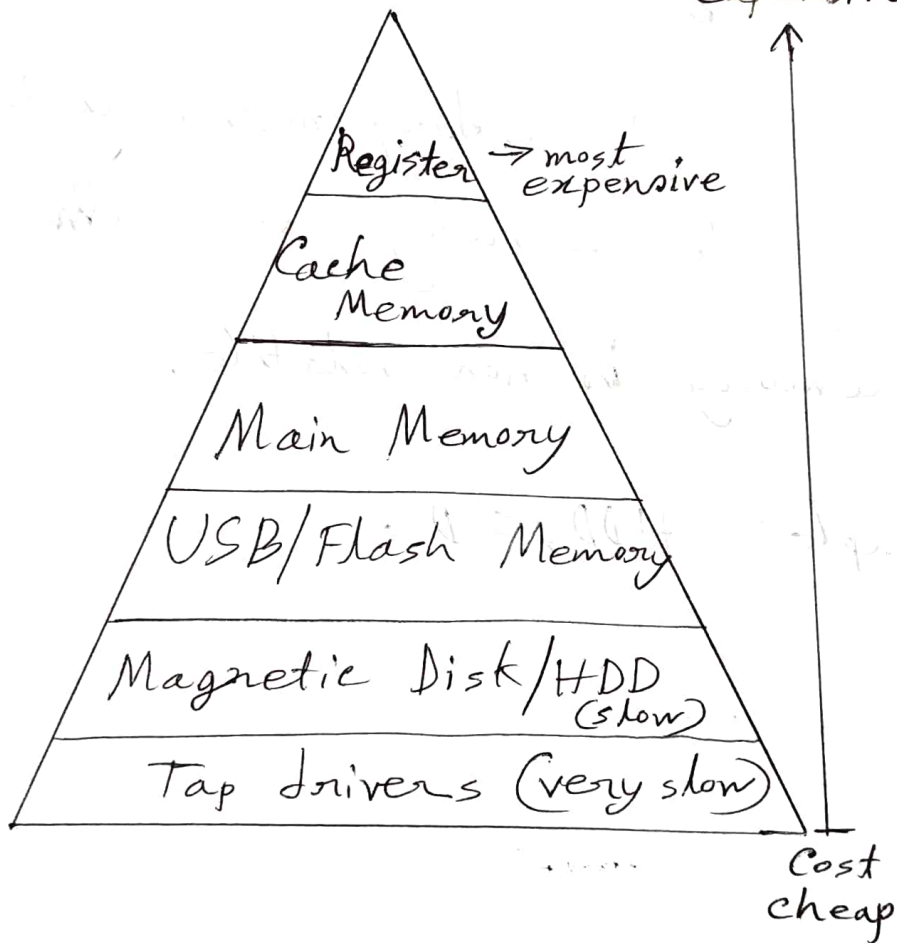 Register → most
expensive
Cache
Memory
Main Memory
USB/Flash Memory
Magnetic Disk/HDD
(slow)
Tap drivers (very slow)
Cost
cheap